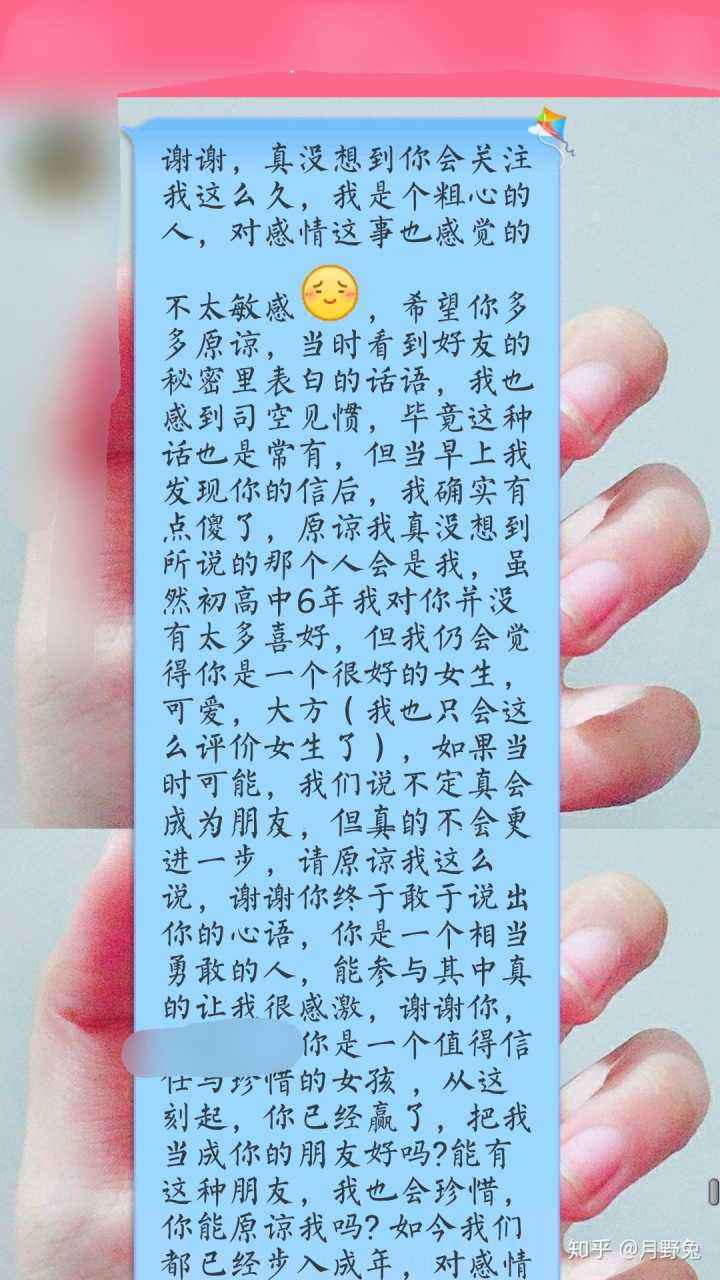 谢谢，真没想到你会关注
我这么久，我是个粗心的
人，对感情这事也感觉的
不太敏感，希望你多
多原谅，当时看到好友的
秘密里表白的话语，我也
感到司空见惯，毕竟这种
话也是常有，但当早上我
发现你的信后，我确实有
点傻了，原谅我真没想到
所说的那个人会是我，虽
然初高中6年我对你并没
有太多喜好，但我仍会觉
得你是一个很好的女生，
可爱，大方（我也只会这
么评价女生了），如果当
时可能，我们说不定真会
成为朋友，但真的不会更
进一步，请原谅我这么
说，谢谢你终于敢于说出
你的心语，你是一个相当
勇敢的人，能参与其中真
的让我很感激，谢谢你，
你是一个值得信
任与珍惜的女孩，从这
刻起，你已经赢了，把我
当成你的朋友好吗?能有
这种朋友，我也会珍惜，
你能原谅我吗?如今我们
都已经步入成年，对感情
知乎 @月野兔